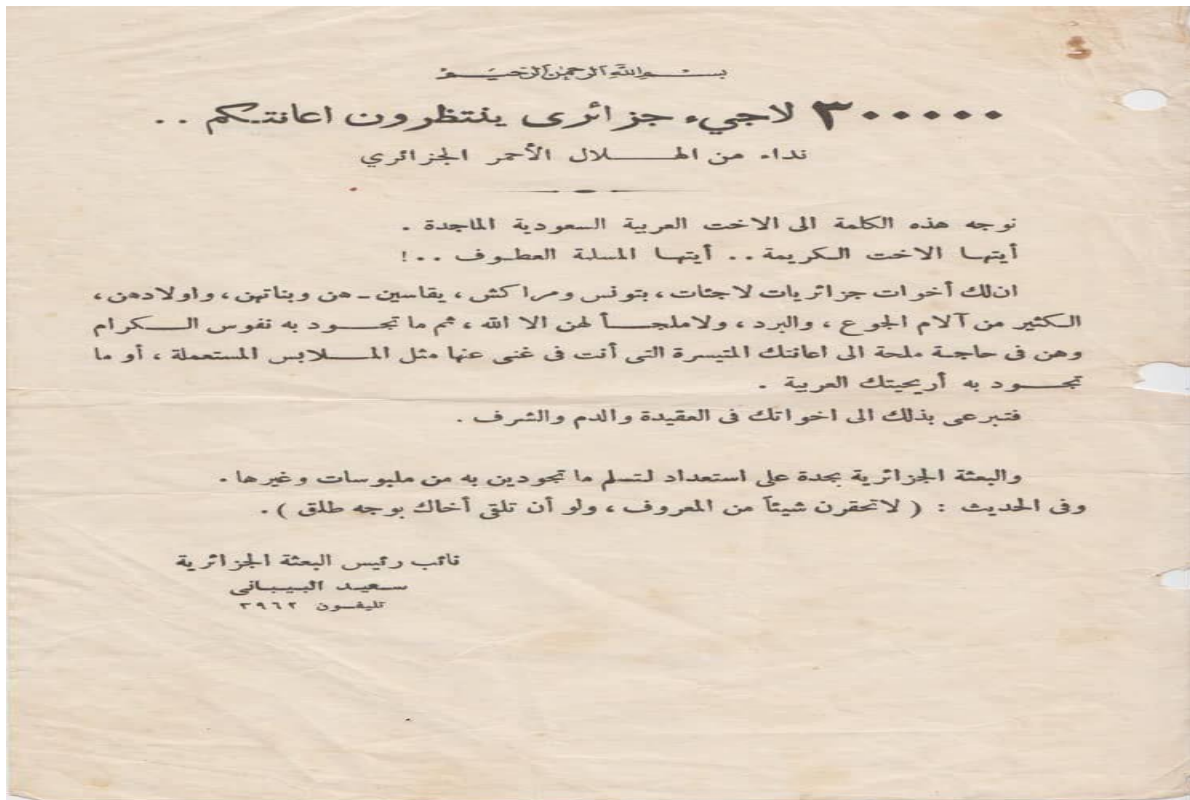 بسم الله الرحمن الرحيم
٣٠٠٠٠٠ لاجيء جزائرى ينتظرون اعانتكم ..
نداء من الهلال الأحمر الجزائري
نوجه هذه الكلمة الى الاخت العربية السعودية الماجدة .
أيتها الاخت الكريمة .. أيتها المسلمة العطوف ..!
ان لك أخوات جزائريات لاجئات ، بتونس ومراكش ، يقاسين ـ هن وبناتهن ، واولادهن ،
الكثير من آلام الجوع ، والبرد ، ولا ملجأ لهن الا الله ، ثم ما تجود به نفوس الكرام
وهن فى حاجة ملحة الى اعانتك المتيسرة التى أنت فى غنى عنها مثل الملابس المستعملة ، أو ما
تجود به أريحيتك العربية .
فتبرعى بذلك الى اخواتك فى العقيدة والدم والشرف .
والبعثة الجزائرية بجدة على استعداد لتسلم ما تجودين به من ملبوسات وغيرها .
وفى الحديث : ( لا تحقرن شيئاً من المعروف ، ولو أن تلقى أخاك بوجه طلق ) .
نائب رئيس البعثة الجزائرية
سعيد البيبانى
تليفون ٣٩٦٢